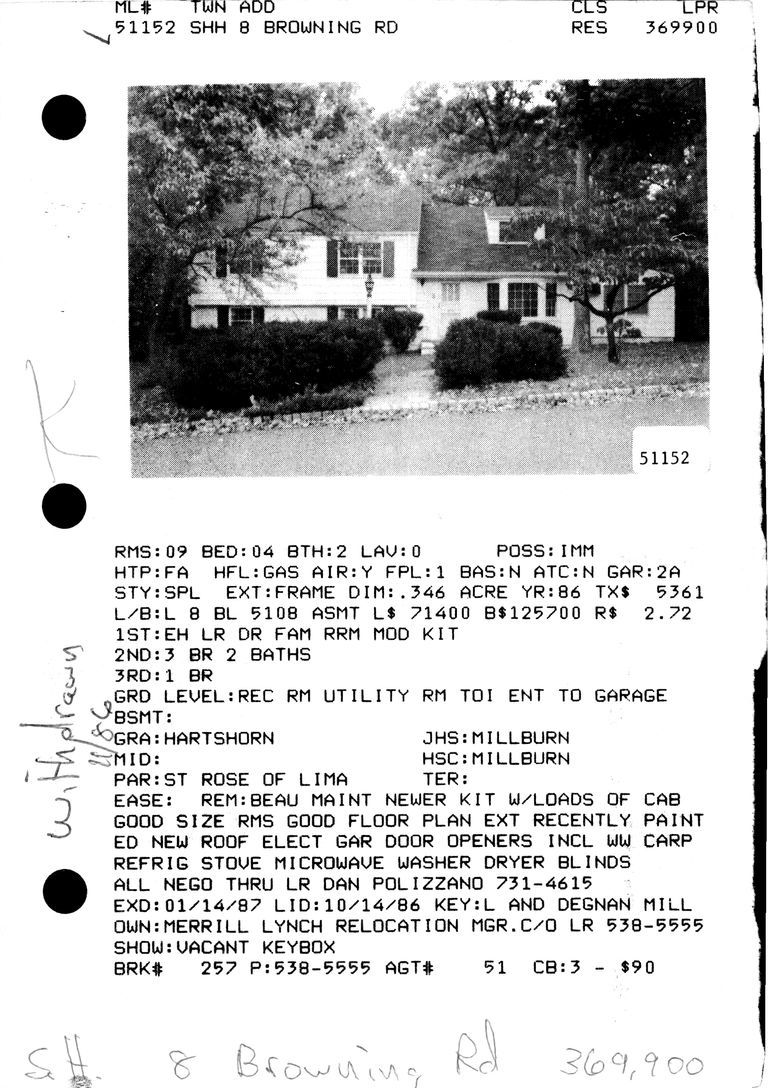 ML# TWN ADD CLS LPR
51152 SHH 8 BROWNING RD RES 369900
51152
RMS:09 BED:04 BTH:2 LAV:0 POSS:IMM
HTP:FA HFL:GAS AIR:Y FPL:1 BAS:N ATC:N GAR:2A
STY:SPL EXT:FRAME DIM:.346 ACRE YR:86 TX$ 5361
L/B:L 8 BL 5108 ASMT L$ 71400 B$125700 R$ 2.72
1ST:EH LR DR FAM RRM MOD KIT
2ND:3 BR 2 BATHS
3RD:1 BR
GRD LEVEL:REC RM UTILITY RM TOI ENT TO GARAGE
BSMT:
GRA:HARTSHORN JHS:MILLBURN
MID: HSC:MILLBURN
PAR:ST ROSE OF LIMA TER:
EASE: REM:BEAU MAINT NEWER KIT W/LOADS OF CAB
GOOD SIZE RMS GOOD FLOOR PLAN EXT RECENTLY PAINT
ED NEW ROOF ELECT GAR DOOR OPENERS INCL WW CARP
REFRIG STOVE MICROWAVE WASHER DRYER BLINDS
ALL NEGO THRU LR DAN POLIZZANO 731-4615
EXD:01/14/87 LID:10/14/86 KEY:L AND DEGNAN MILL
OWN:MERRILL LYNCH RELOCATION MGR.C/O LR 538-5555
SHOW:VACANT KEYBOX
BRK# 257 P:538-5555 AGT# 51 CB:3 - $90
Withdrawn
11/86
S.H. 8 Browning Rd 369,900